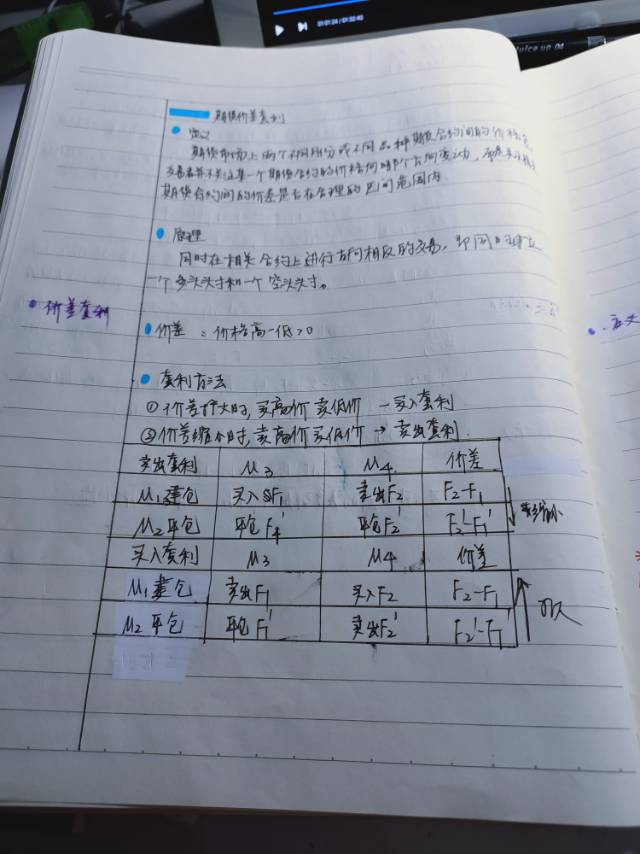 期货价差套利
定义
期货市场上两个不同月份或不同品种期货合约间的价格差
交易者并不关注某一个期货合约的价格向哪个方向变动，而是关注相关
期货合约间的价差是否在合理的区间范围内
原理
同时在相关合约上进行方向相反的交易，即同时建立
一个多头头寸和一个空头头寸。
价差套利
价差：价格高-低>0
套利方法
① 价差扩大时，买高价 卖低价 → 买入套利
② 价差缩小时，卖高价买低价 → 卖出套利
卖出套利 M3 M4 价差
M1建仓 买入F1 卖出F2 F2-F1
M2平仓 平仓 F2'-F1' 缩小
买入套利 M3 M4 价差
M1建仓 卖出F1 买入F2 F2-F1
M2平仓 平仓F1' 卖出F2' F2'-F1'
定义
01:01:24 / 01:33:40